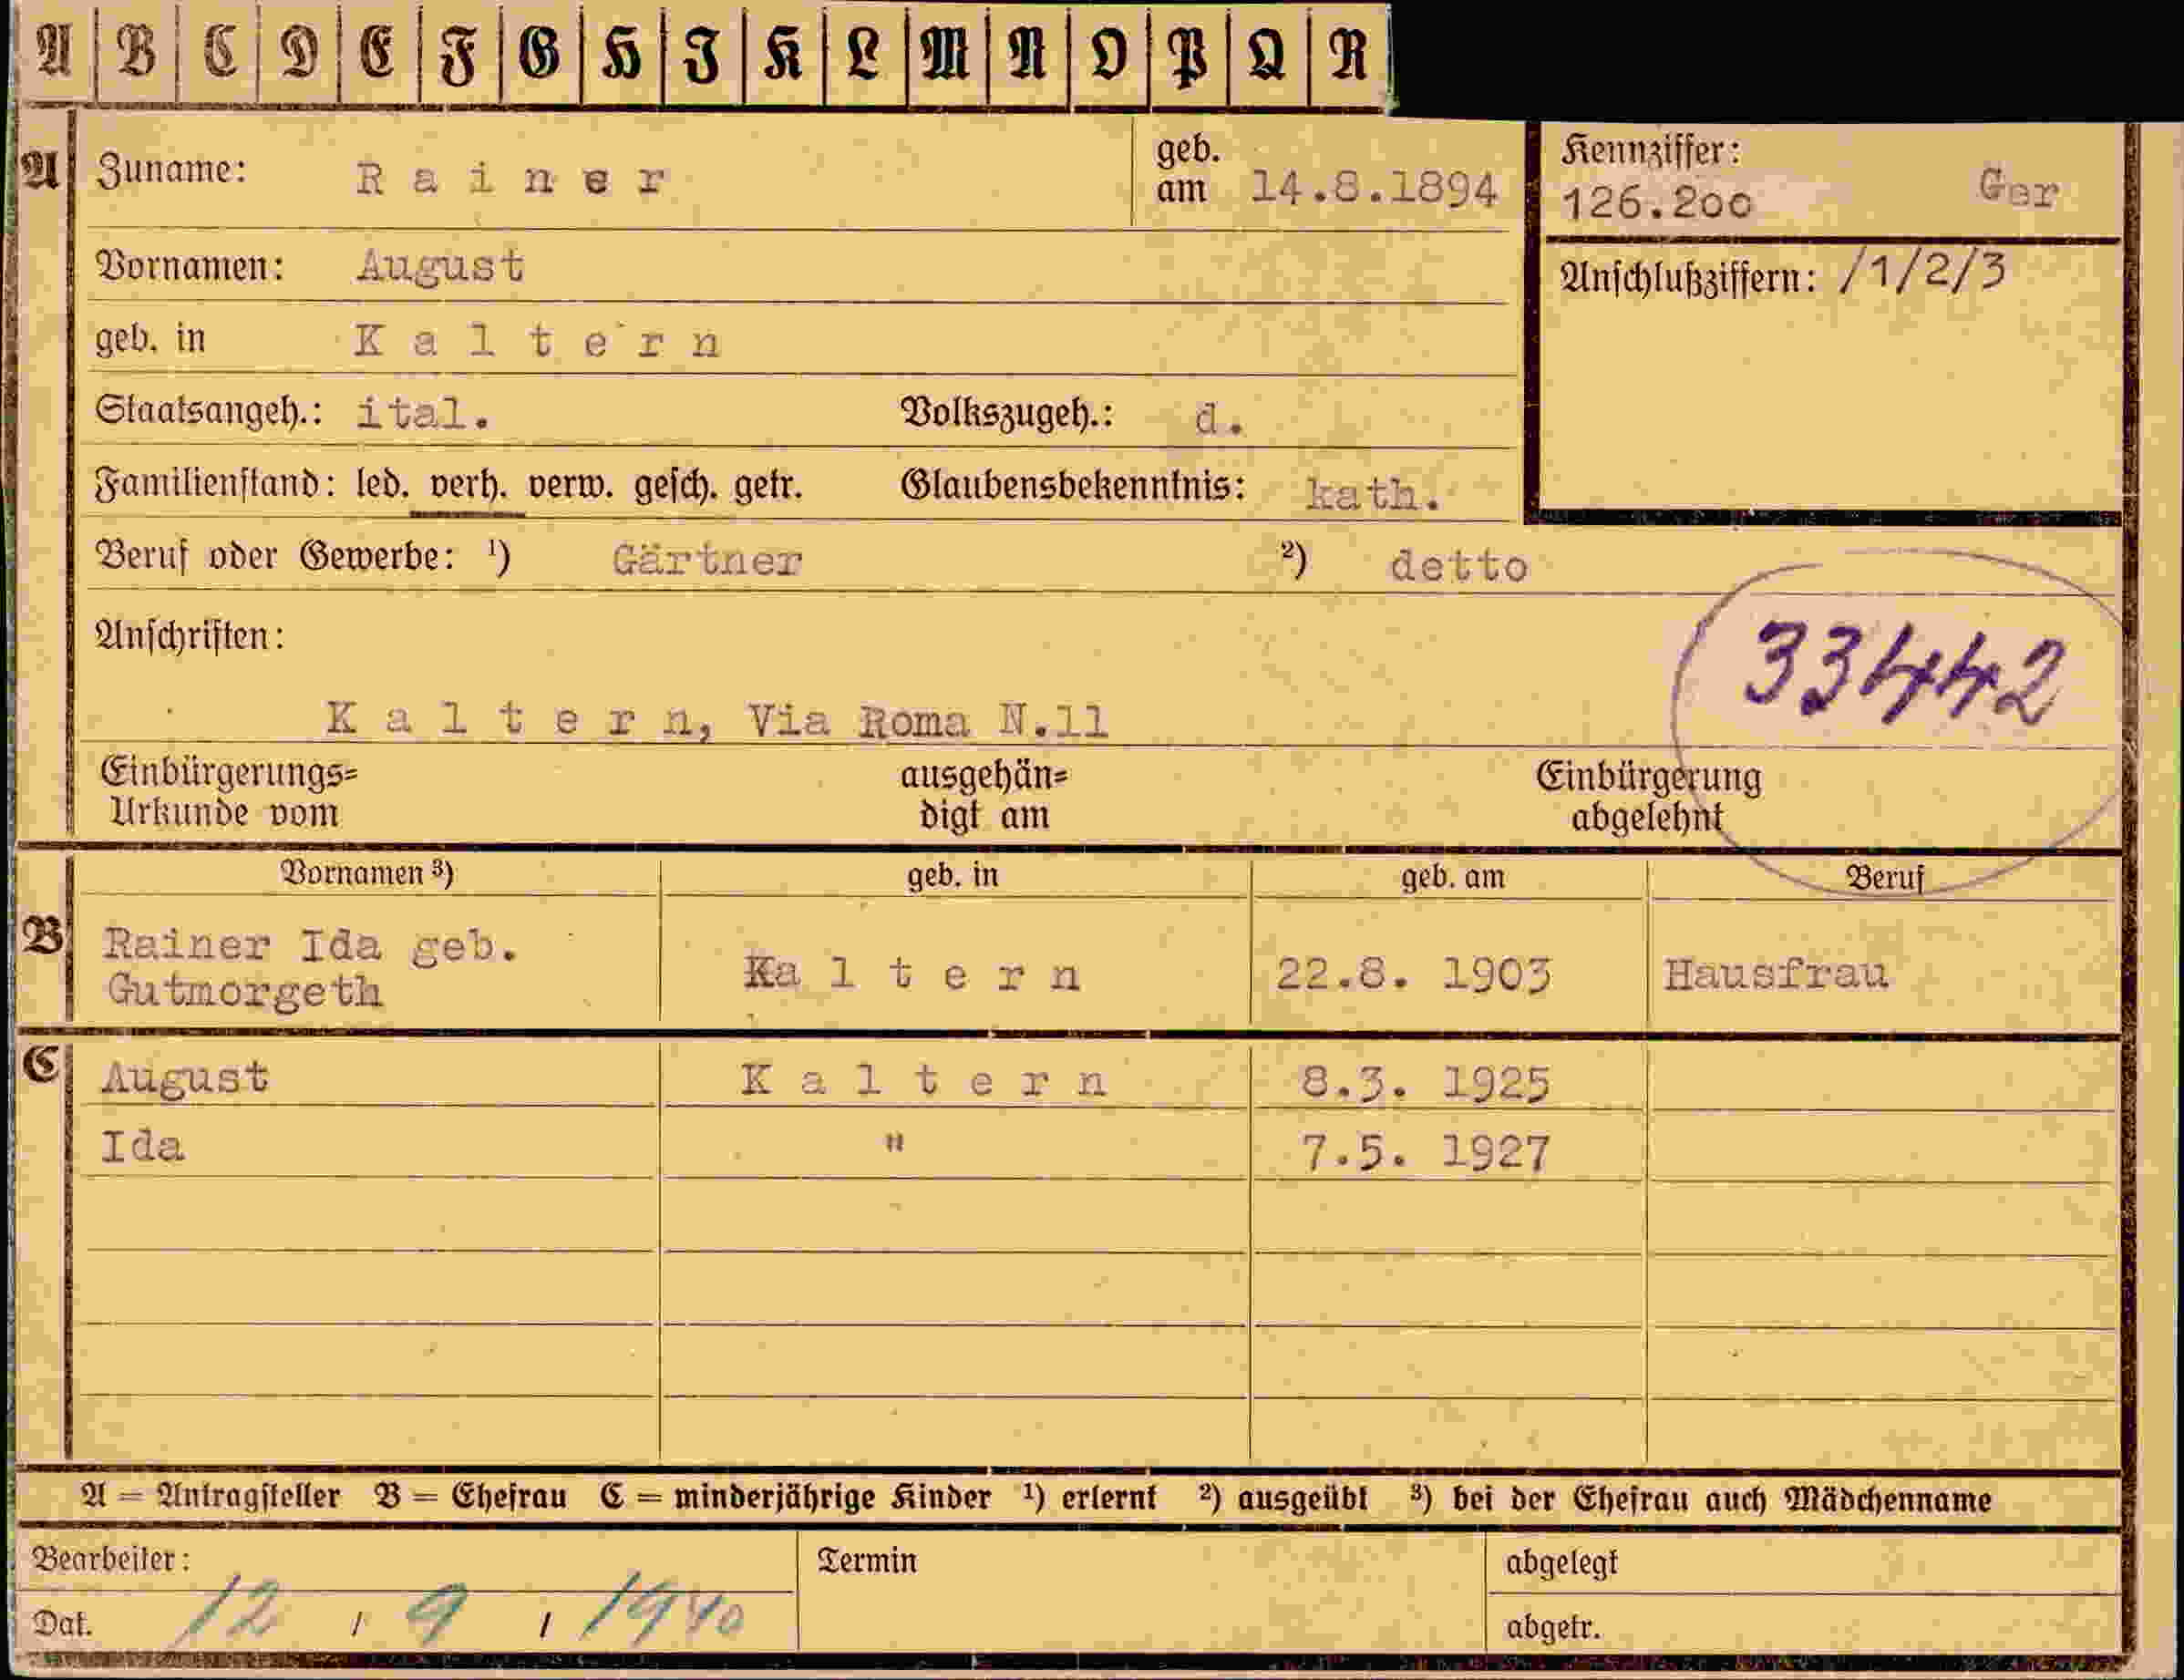 A B C D E F G H I K L M N O P Q R
A Zuname: Rainer geb. am 14.8.1894
Kennziffer: 126.200 Ger
Vornamen: August
Anschlußziffern: /1/2/3
geb. in Kaltern
Staatsangeh.: ital. Volkszugeh.: d.
Familienstand: led. verh. verw. gesch. getr. Glaubensbekenntnis: kath.
Beruf oder Gewerbe: ¹) Gärtner ²) detto
Anschriften:
33442
Kaltern, Via Roma N.11
Einbürgerungs= ausgehän= Einbürgerung
Urkunde vom digt am abgelehnt
Vornamen ³) geb. in geb. am Beruf
B Rainer Ida geb.
Gutmorgeth Kaltern 22.8. 1903 Hausfrau
C August Kaltern 8.3. 1925
Ida " 7.5. 1927
A = Antragsteller B = Ehefrau C = minderjährige Kinder ¹) erlernt ²) ausgeübt ³) bei der Ehefrau auch Mädchenname
Bearbeiter: Termin abgelegt
Dat. 12 / 9 / 1940 abgetr.